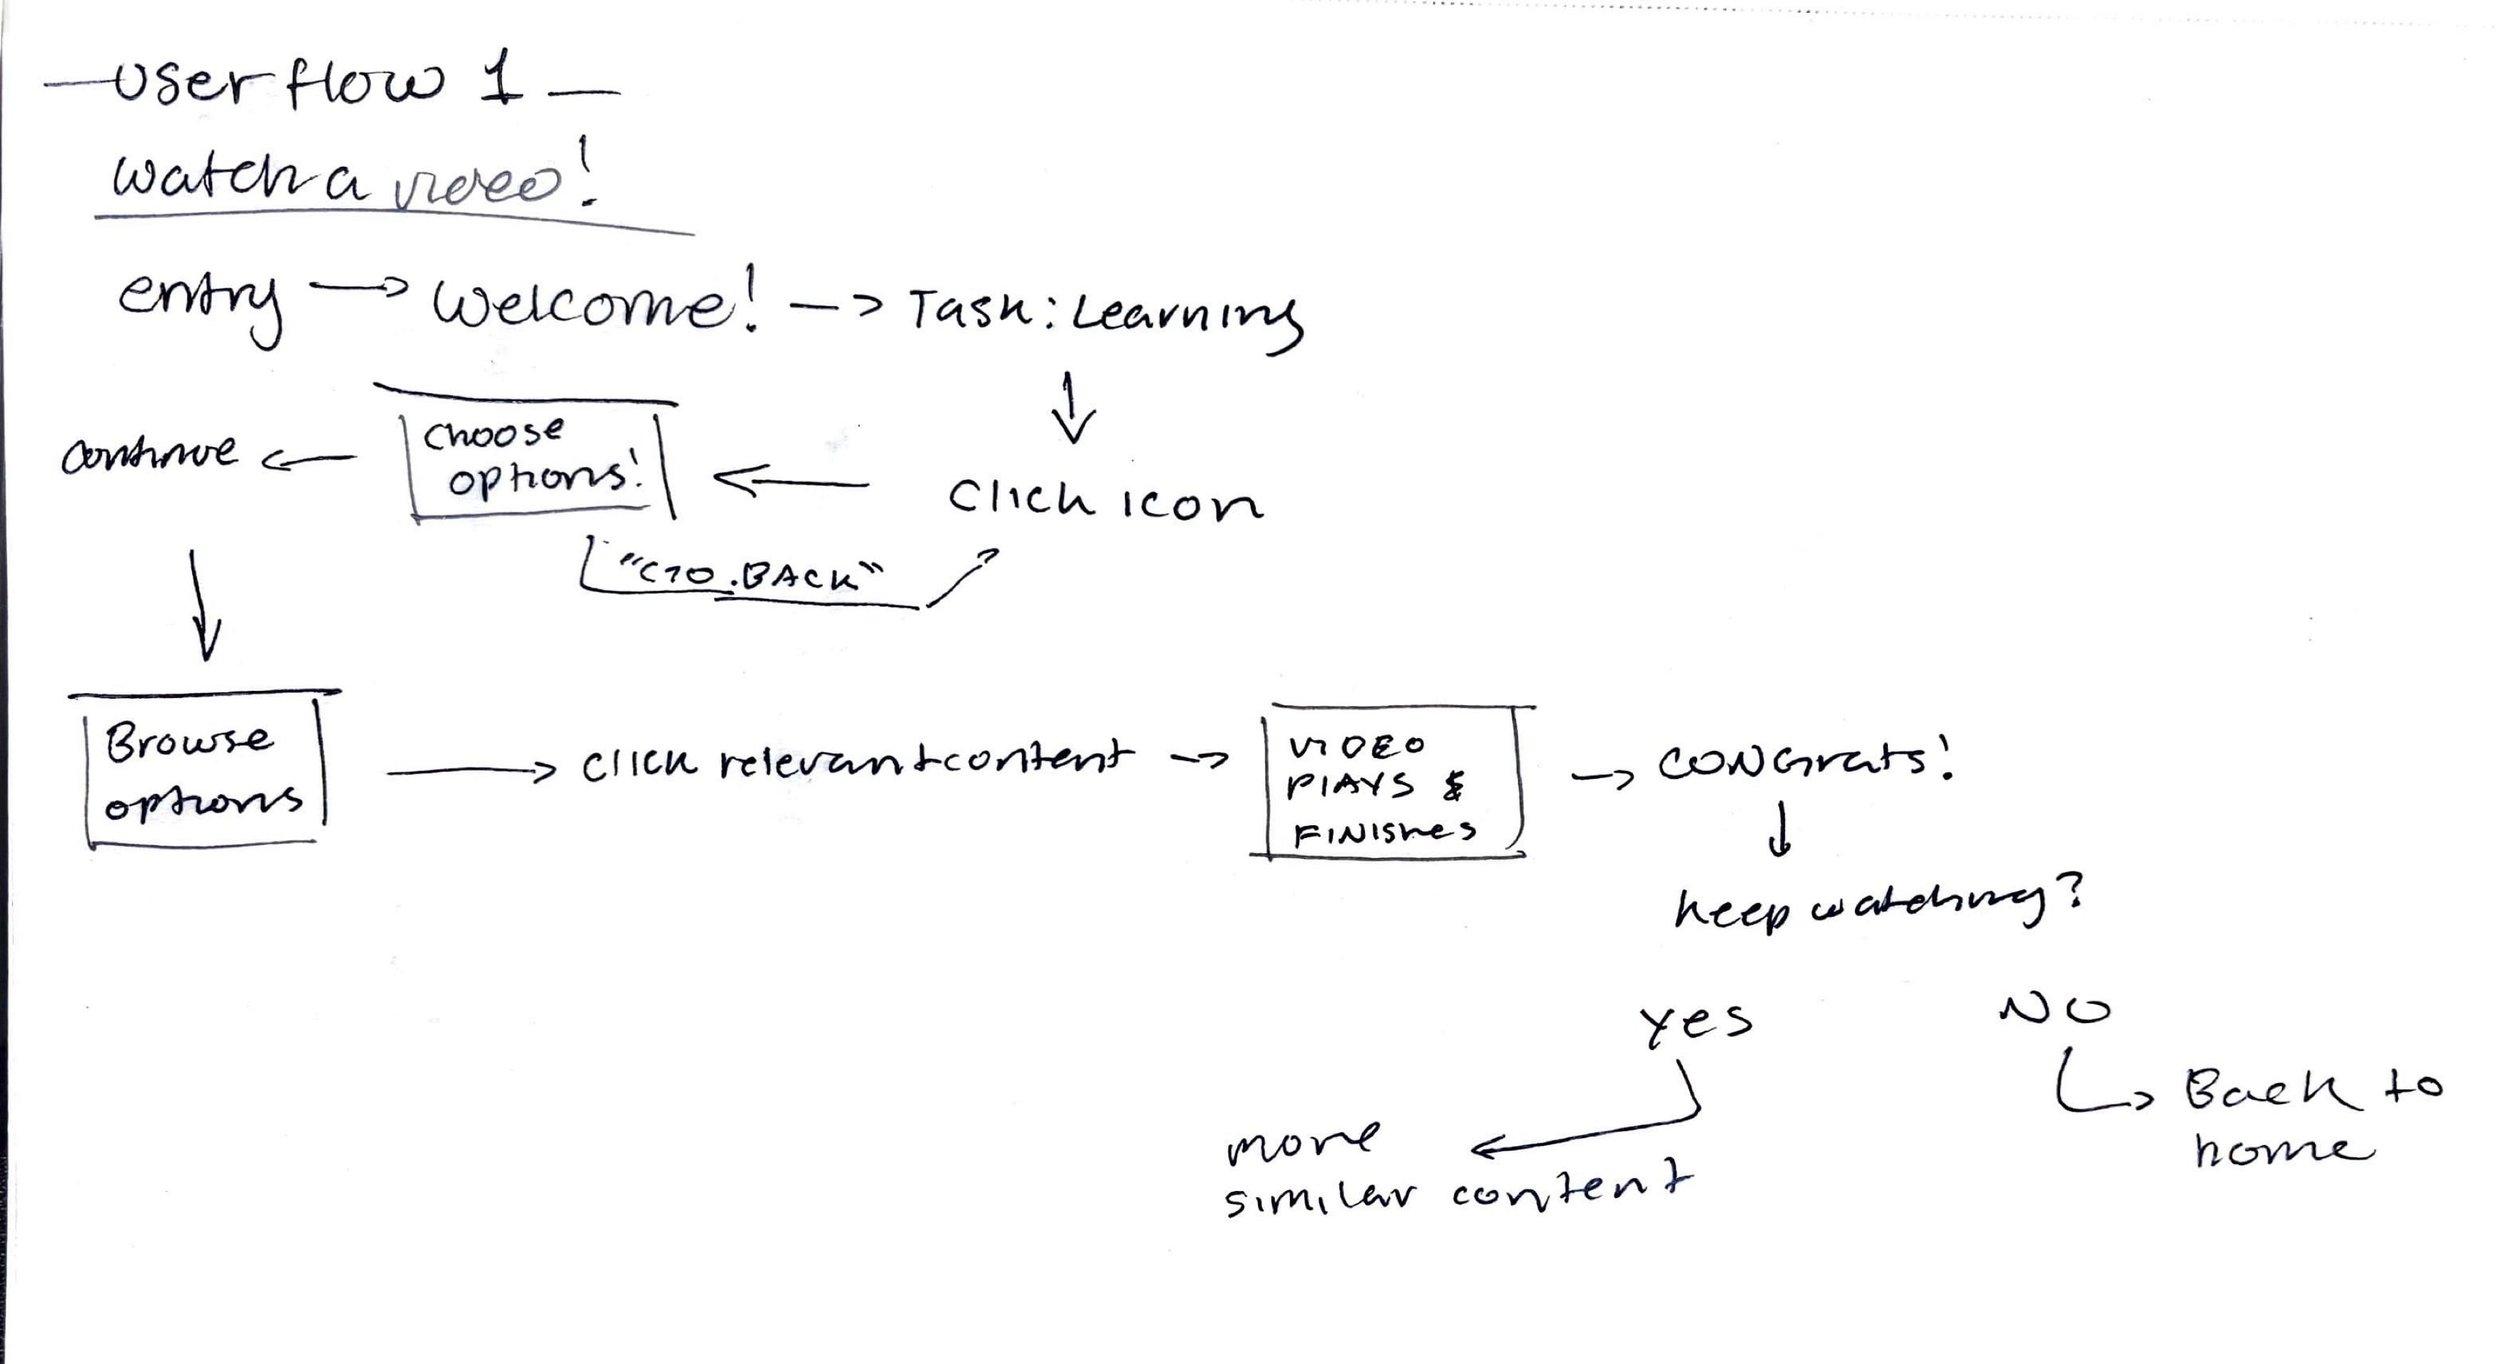 User flow 1
Watch a video!
entry → Welcome! → Task: Learning
continue ← choose options! ← click icon
"GO.BACK"
Browse options → click relevant content → VIDEO PLAYS & FINISHES → CONGrats!
keep watching?
yes NO
Back to
home
more
similar content